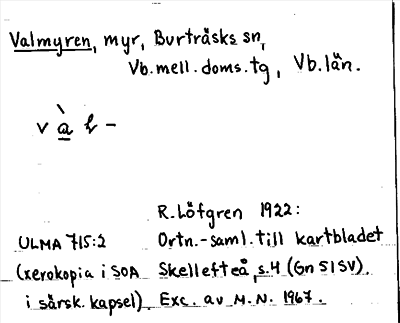 Valmyren, myr, Burträsks sn,
Vb.mell.doms.tg, Vb.län.
R.Löfgren 1922:
ULMA 715:2 Ortn.-saml. till kartbladet
(xerokopia i SOA Skellefteå, s.4 (Gn 51SV).
i särsk. kapsel). Exc. av M.N. 1967.